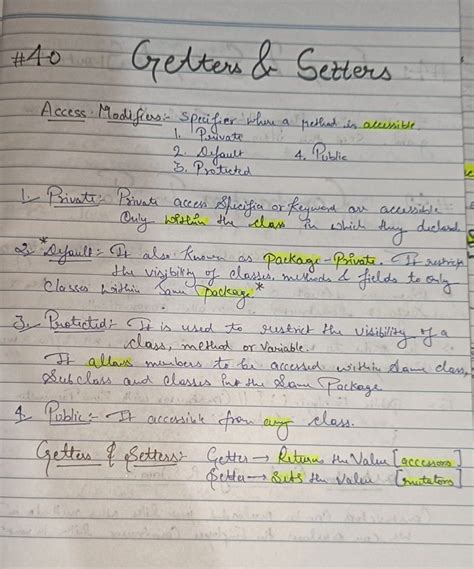 #40 Getters & Setters
Access Modifiers:- Specifier where a method is accessible
1. Private
2. Default 4. Public
3. Protected
1. Private:- Private access Specifier or Keyword are accessible
Only within the class in which they declared
2. *Default:- It also known as Package-Private. It restricts
the visibility of classes, methods & fields to only
Classes within Same package*
3. Protected:- It is used to restrict the visibility of a
class, method or Variable.
It allows members to be accessed within Same class,
Subclass and classes the Same Package
4. Public:- It accessible from any class.
Getters & Setters:- Getter → Return the Value [accessors]
Setter → Sets the Value [mutators]